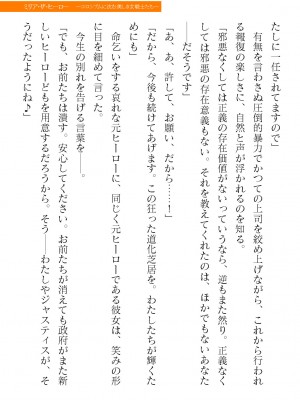 ミリア・ザ・ヒーロー
たしに一任されてますので」
　有無を言わさぬ圧倒的暴力でかつての上司を絞め上げながら、これから行われ
る報復の楽しさに、自然と声が浮かれるのを知る。
「邪悪なくしては正義の存在価値がないっていうなら、逆もまた然り。正義なく
しては邪悪の存在意義もない。それを教えてくれたのは、ほかでもないあなた
――だそうです」
「あ、あ、許して、お願い、だから……！」
「だから、今後も続けてあげます。この狂った道化芝居を。わたしたちが輝くた
めにも」
　命乞いをする哀れな元ヒーローに、同じく元ヒーローである彼女は、笑みの形
に目を細めて言った。
　今生の別れを告げる言葉を――。
「でも、お前たちは潰す。安心してください。お前たちが消えても政府がまた新
しいヒーローどもを用意するだろうから。そう――わたしやジャスティスが、そ
うだったようにね♪」